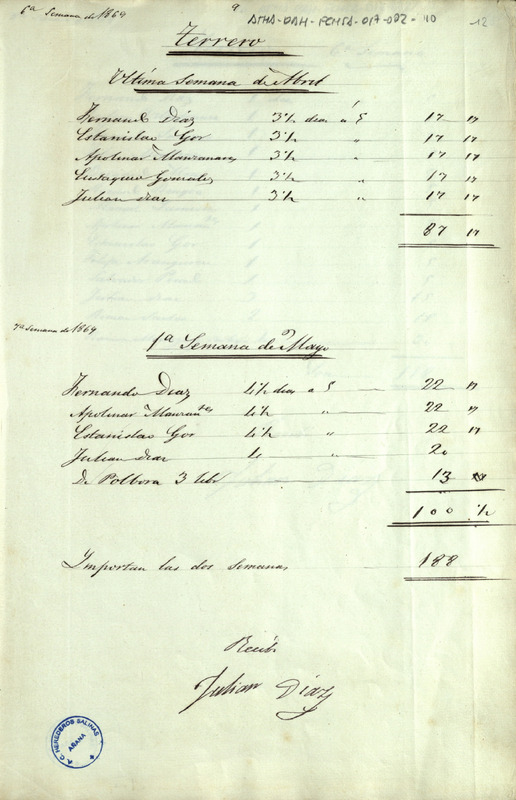 6ª Semana de 1869
ATHA-DAH-FCHSA-017-002-10
12
Terrero
Ultima Semana de Abril
Fernando Diaz 3½ dias á 5 17 ½
Estanislao Gor 3½ " 17 ½
Apolinar Manzanares 3½ " 17 ½
Eustaquio Gonzalez 3½ " 17 ½
Julian diaz 3½ " 17 ½
87 ½
7ª Semana de 1869
1ª Semana de Mayo
Fernando Diaz 4½ dias a 5 22 ½
Apolinar Manzares 4½ " 22 ½
Estanislao Gor 4½ " 22 ½
Julian diaz 4 " 20
De Polbora 3 libr 13
100 ½
Importan las dos semanas 188
Recibi
Julian Diaz
A.C. HEREDEROS SALINAS
AÑANA